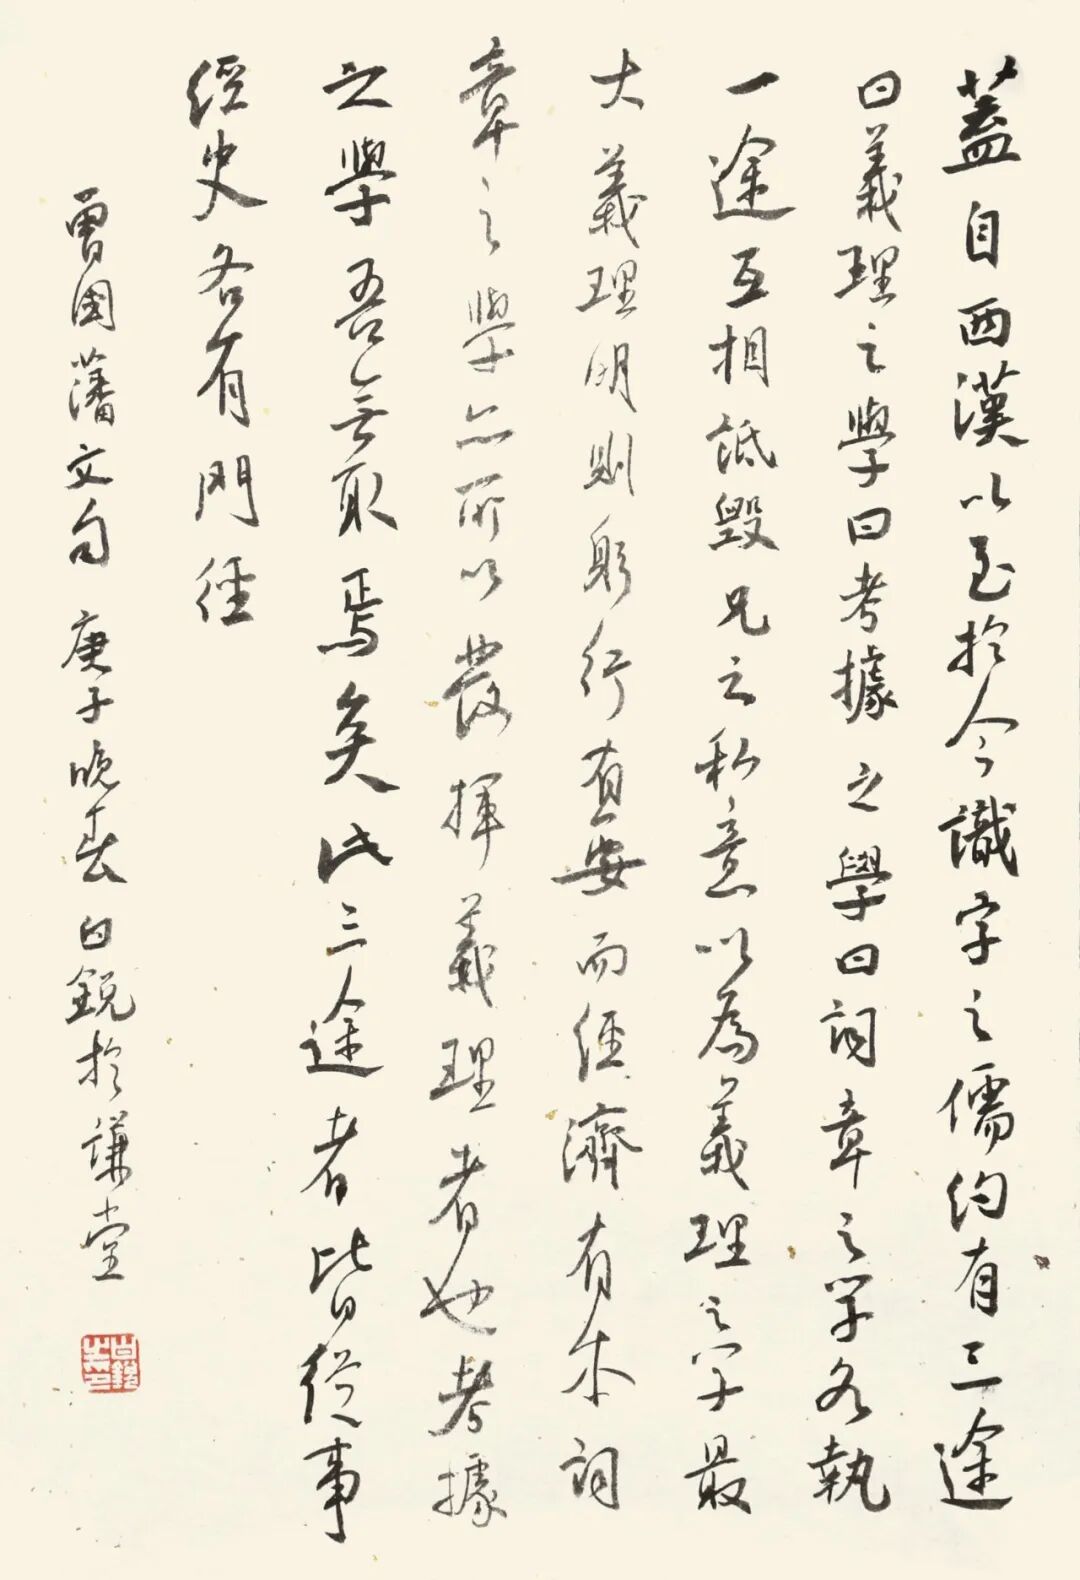 蓋自西漢以至於今識字之儒約有三途
曰義理之學曰考據之學曰詞章之學各執
一途互相詆毀兄之私意以為義理之學最
大義理明則躬行有要而經濟有本詞
章之學亦所以發揮義理者也考據
之學吾無取焉矣此三途者皆從事
經史各有門徑
曾國藩文句 庚子晚春 白銳於謙堂
白銳之印